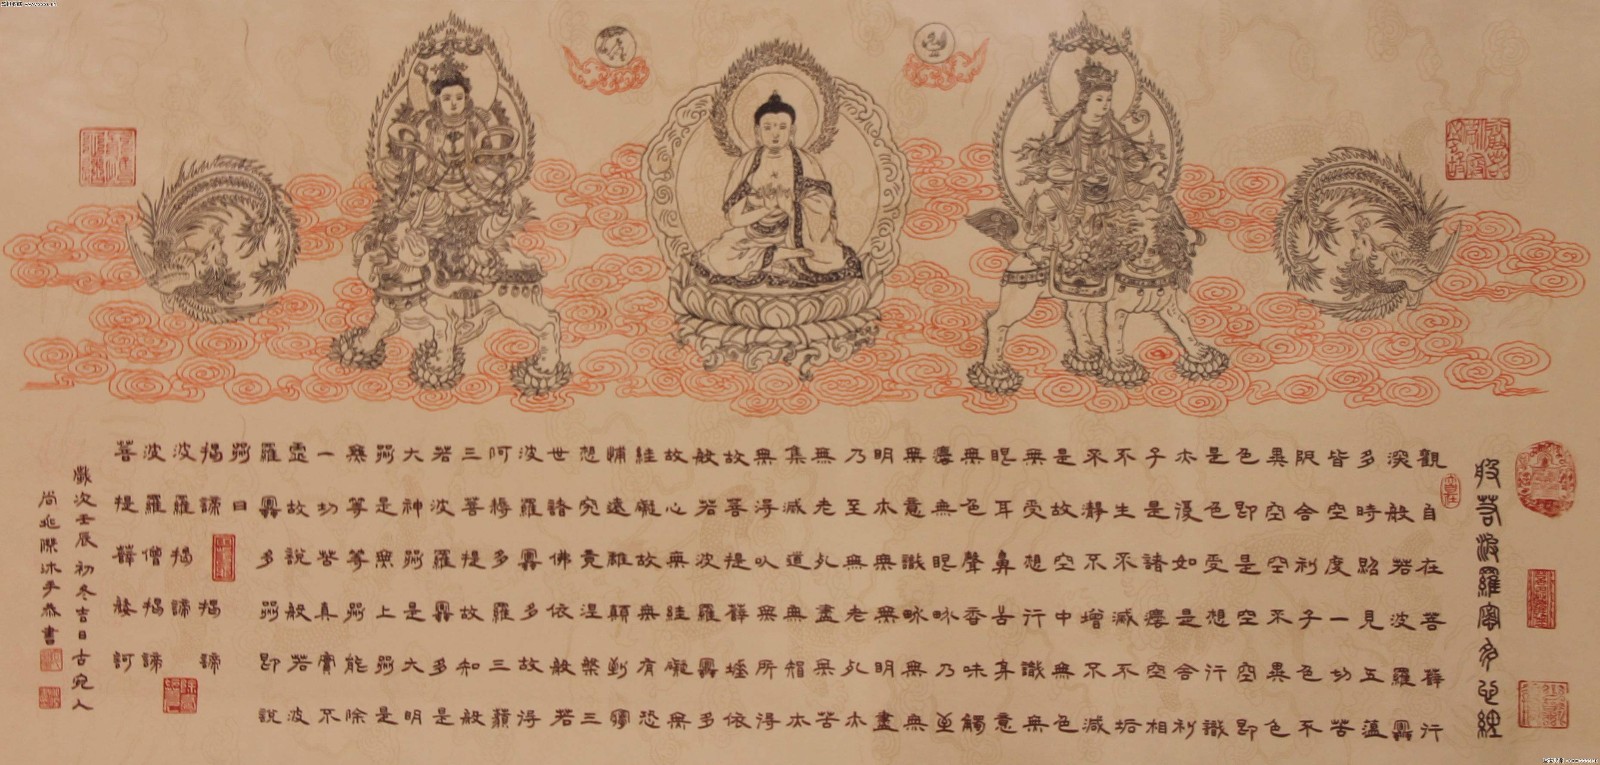 般若波羅蜜多心經
觀自在菩薩行
深般若波羅蜜
多時照見五蘊
皆空度一切苦
厄舍利子色不
異空空不異色
色即是空空即
是色受想行識
亦復如是舍利
子是諸法空相
不生不滅不垢
不淨不增不減
是故空中無色
無受想行識無
眼耳鼻舌身意
無色聲香味觸
法無眼界乃至
無意識界無無
明亦無無明盡
乃至無老死亦
無老死盡無苦
集滅道無智亦
無得以無所得
故菩提薩埵依
般若波羅蜜多
故心無罣礙無
罣礙故無有恐
怖遠離顛倒夢
想究竟涅槃三
世諸佛依般若
波羅蜜多故得
阿耨多羅三藐
三菩提故知般
若波羅蜜多是
大神咒是大明
咒是無上咒是
無等等咒能除
一切苦真實不
虛故說般若波
羅蜜多咒即說
咒曰
揭諦揭諦
波羅揭諦
波羅僧揭諦
菩提薩婆訶
歲次壬辰初冬吉日古宛人
尚兆傑沐手恭書